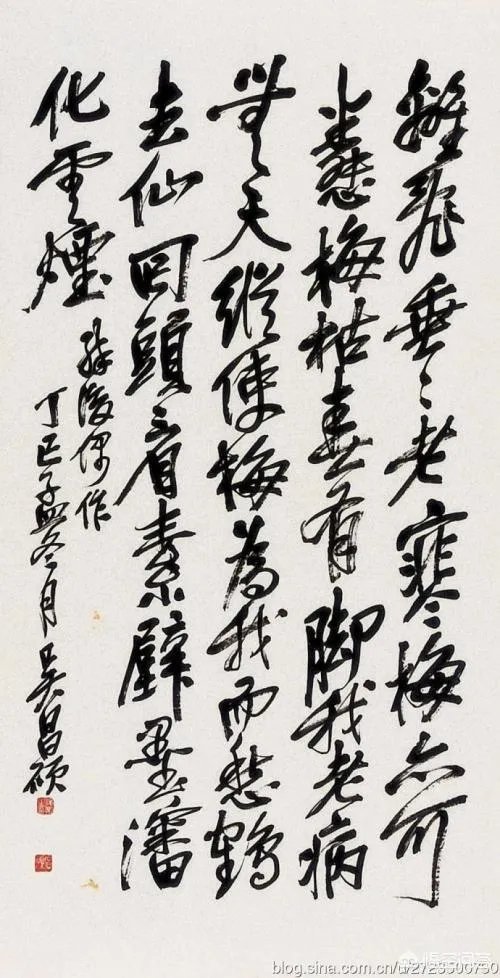 離亂垂〻老寒梅亦可
憐梅枯春有脚我老病
無天縱使梅為我而愁鶴
去仙回頭看素壁墨瀋
化雲煙
醉後偶作
丁巳孟冬月吳昌碩
blog.sina.com.cn/u/2723500730